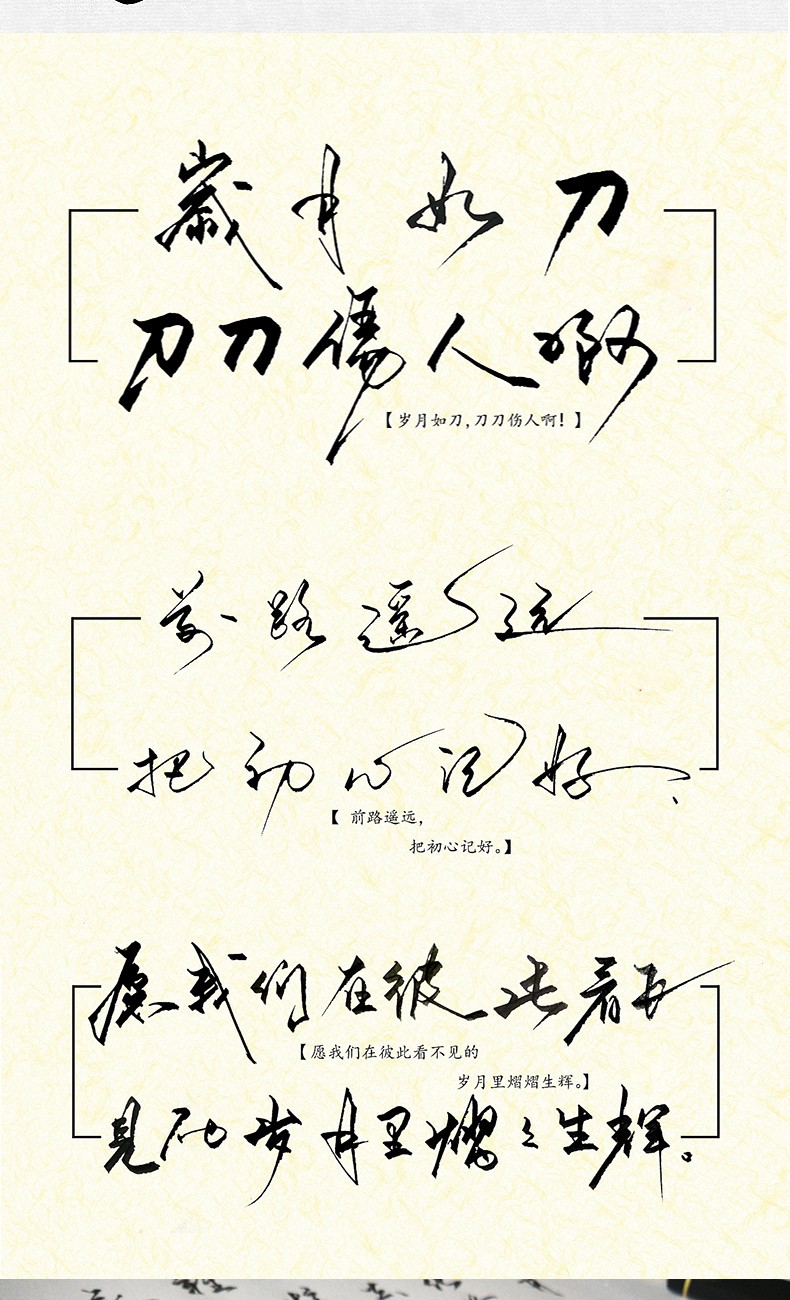 歲月如刀
刀刀傷人啊
【岁月如刀,刀刀伤人啊!】
前路遥远
把初心记好、
【 前路遥远,
把初心记好。】
愿我们在彼此看不
【愿我们在彼此看不见的
岁月里熠熠生辉。】
见的岁月里熠々生辉。